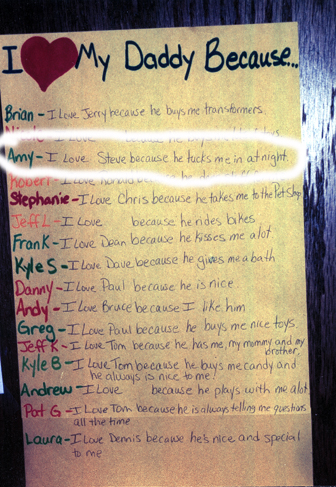 I ❤ My Daddy Because...
Brian - I Love Jerry because he buys me transformers.
Amy - I Love Steve because he tucks me in at night.
Robert -
Stephanie - I Love Chris because he takes me to the Pet Shop
Jeff L - I Love because he rides bikes
Frank - I Love Dean because he kisses me alot
Kyle S - I Love Dave because he gives me a bath
Danny - I Love Paul because he is nice
Andy - I Love Bruce because I like him
Greg - I Love Paul because he buys me nice toys.
Jeff K - I Love Tom because he has me, my mummy and my
brother,
Kyle B - I Love Tom because he buys me candy and
he always is nice to me!
Andrew - I Love because he plays with me alot
Pat G - I Love Tom because he is always telling me questions
all the time
Laura - I Love Dennis because he's nice and special
to me